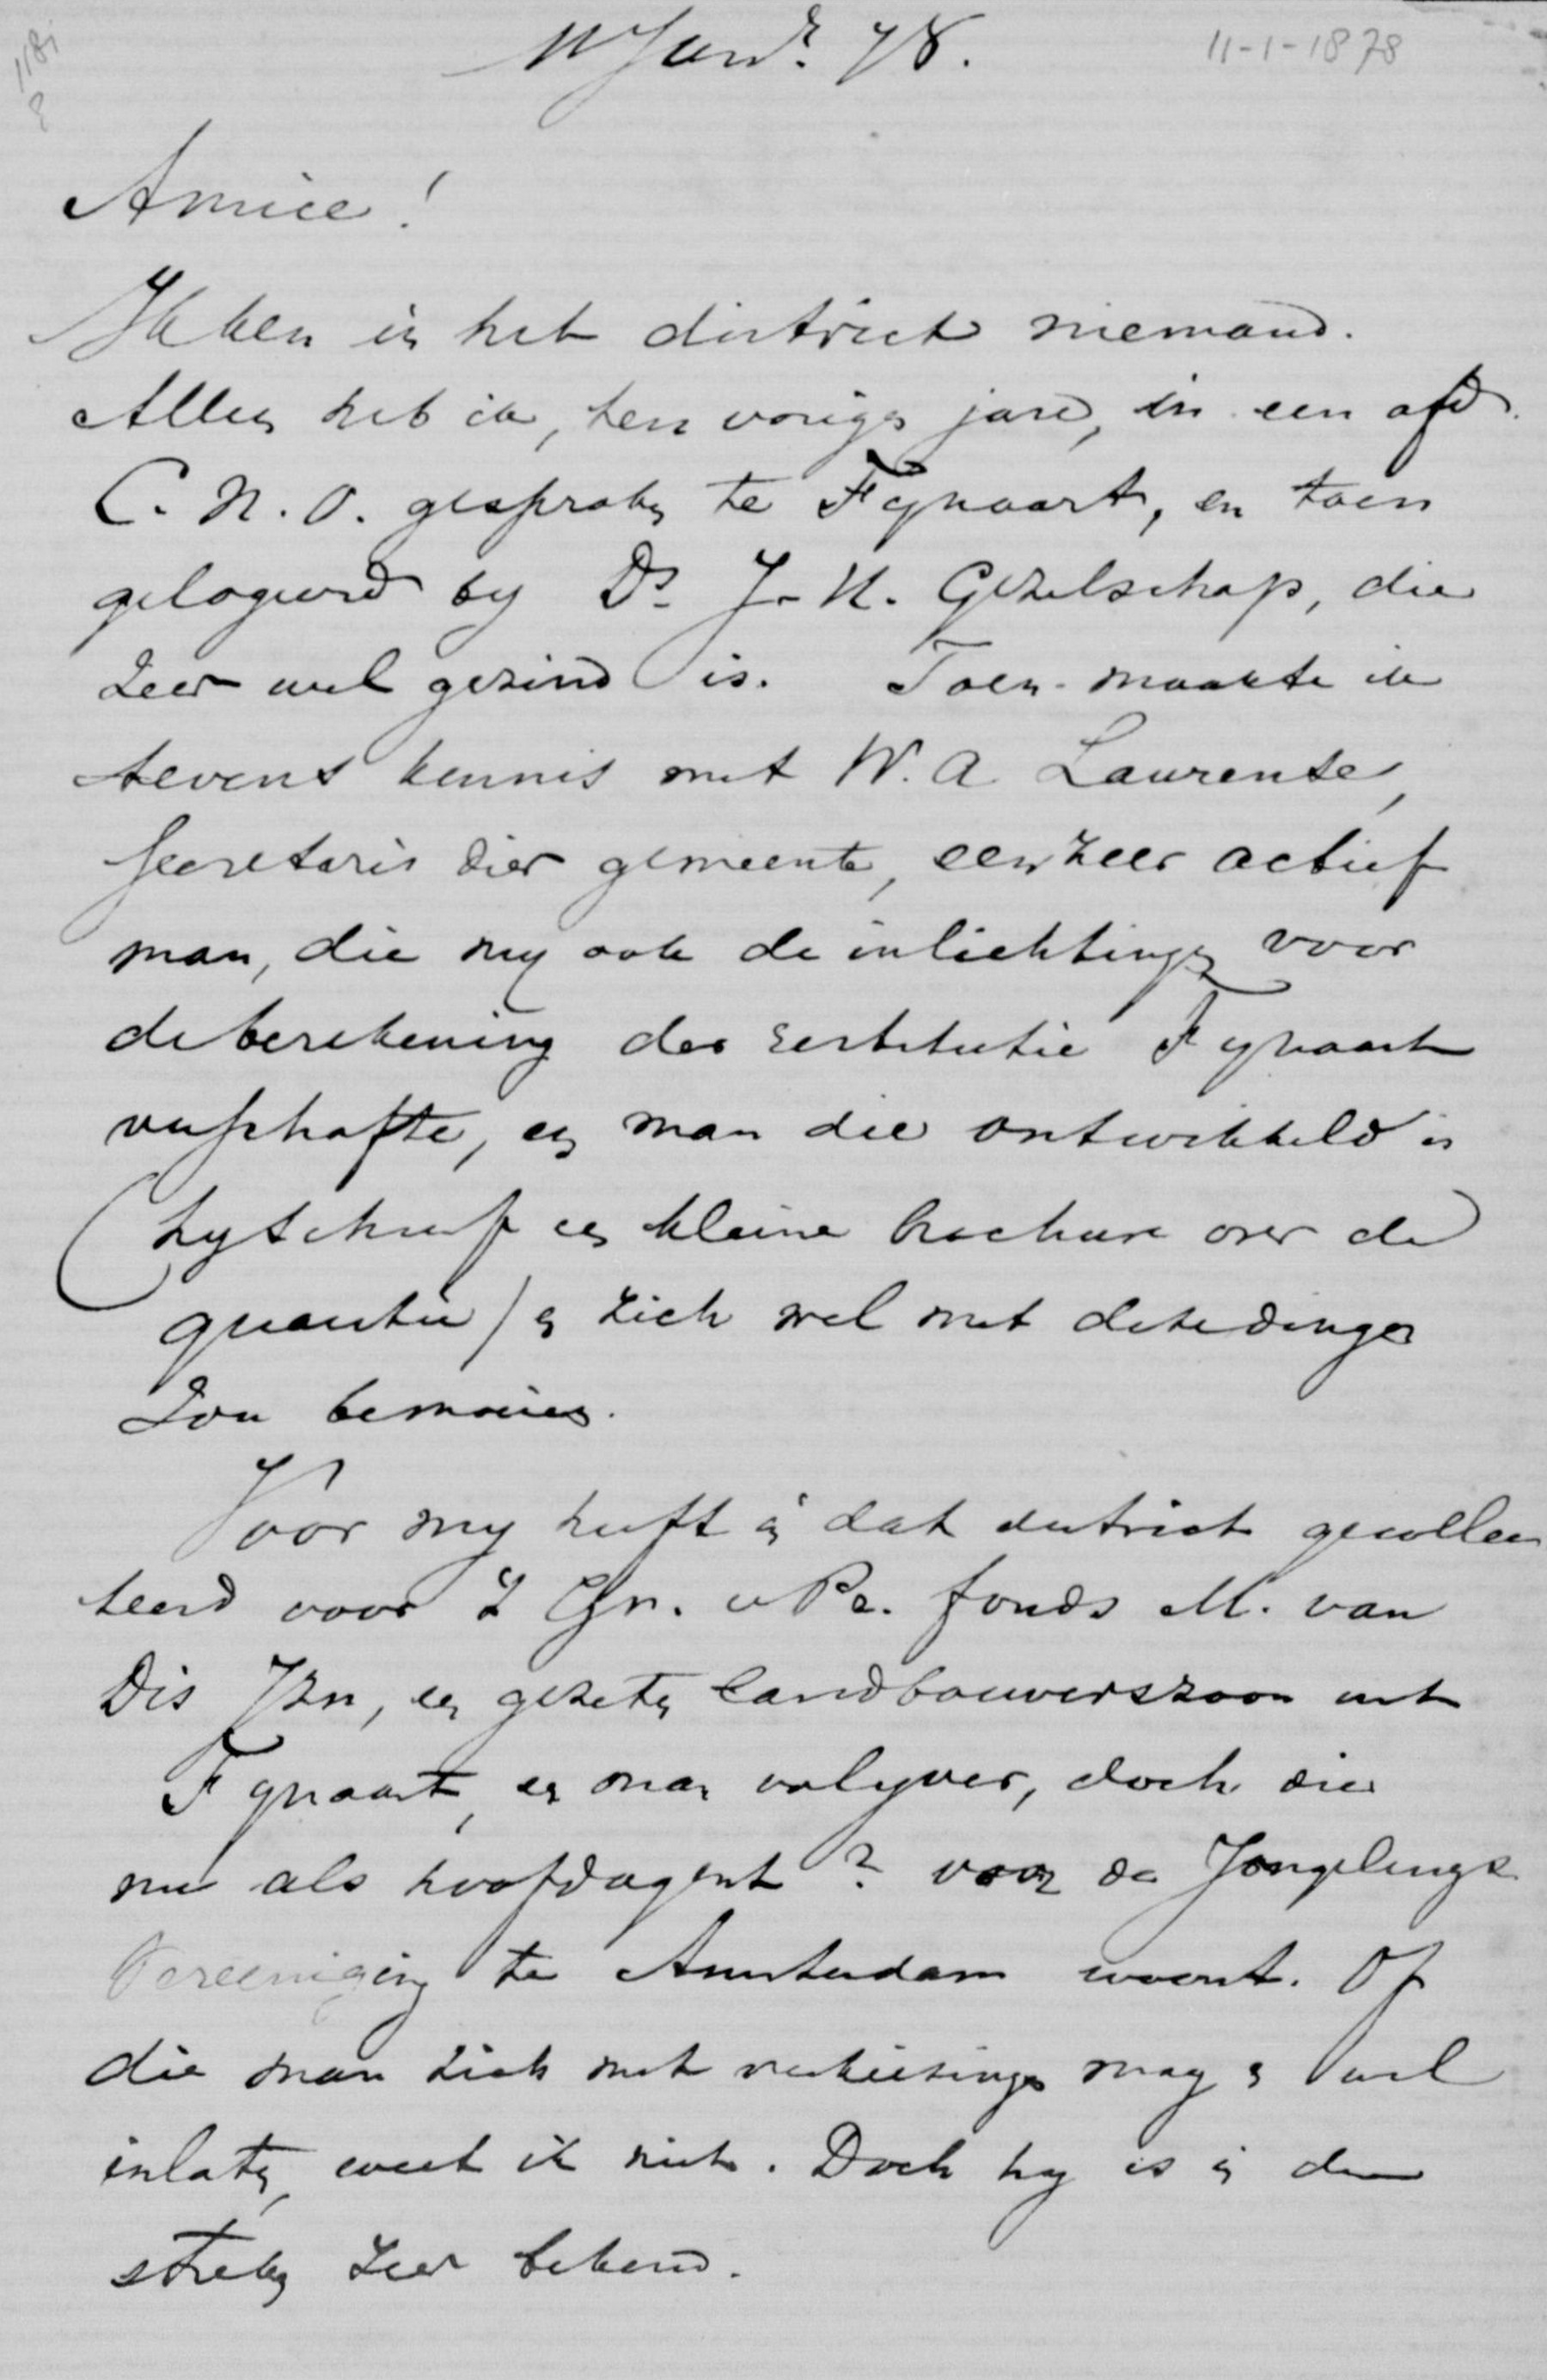 11 Jan. 78.
11-1-1878
Amice!
Ik ken in het district niemand.
Alleen heb ik, ten vorigen jare, in een afd.
C. N. O. gesproken te Fynaart, en toen
gelogeerd by Ds. J. H. Gezelschap, die
zeer wel gezind is. Toen maakte ik
tevens kennis met W. A. Laurense,
Secretaris dier gemeente, een zeer actief
man, die my ook de inlichtingen voor
de berekening der restitutie Fynaart
verschafte, een man die ontwikkeld is
(hy schreef een kleine brochure over de
quaestie) en zich wel met deze dingen
zou bemoeien.
Voor my heeft in dat district gecollec
teerd voor 't Gr. v Pr. fonds M. van
Dis Jzn, een gezeten landbouwerszoon uit
Fynaart, een man vol yver, doch die
nu als hoofdagent? voor de Jongelings
Vereeniging te Amsterdam woont. Of
die man zich met verkiezingen mag en wil
inlaten, weet ik niet. Doch hy is in die
streken zeer bekend.